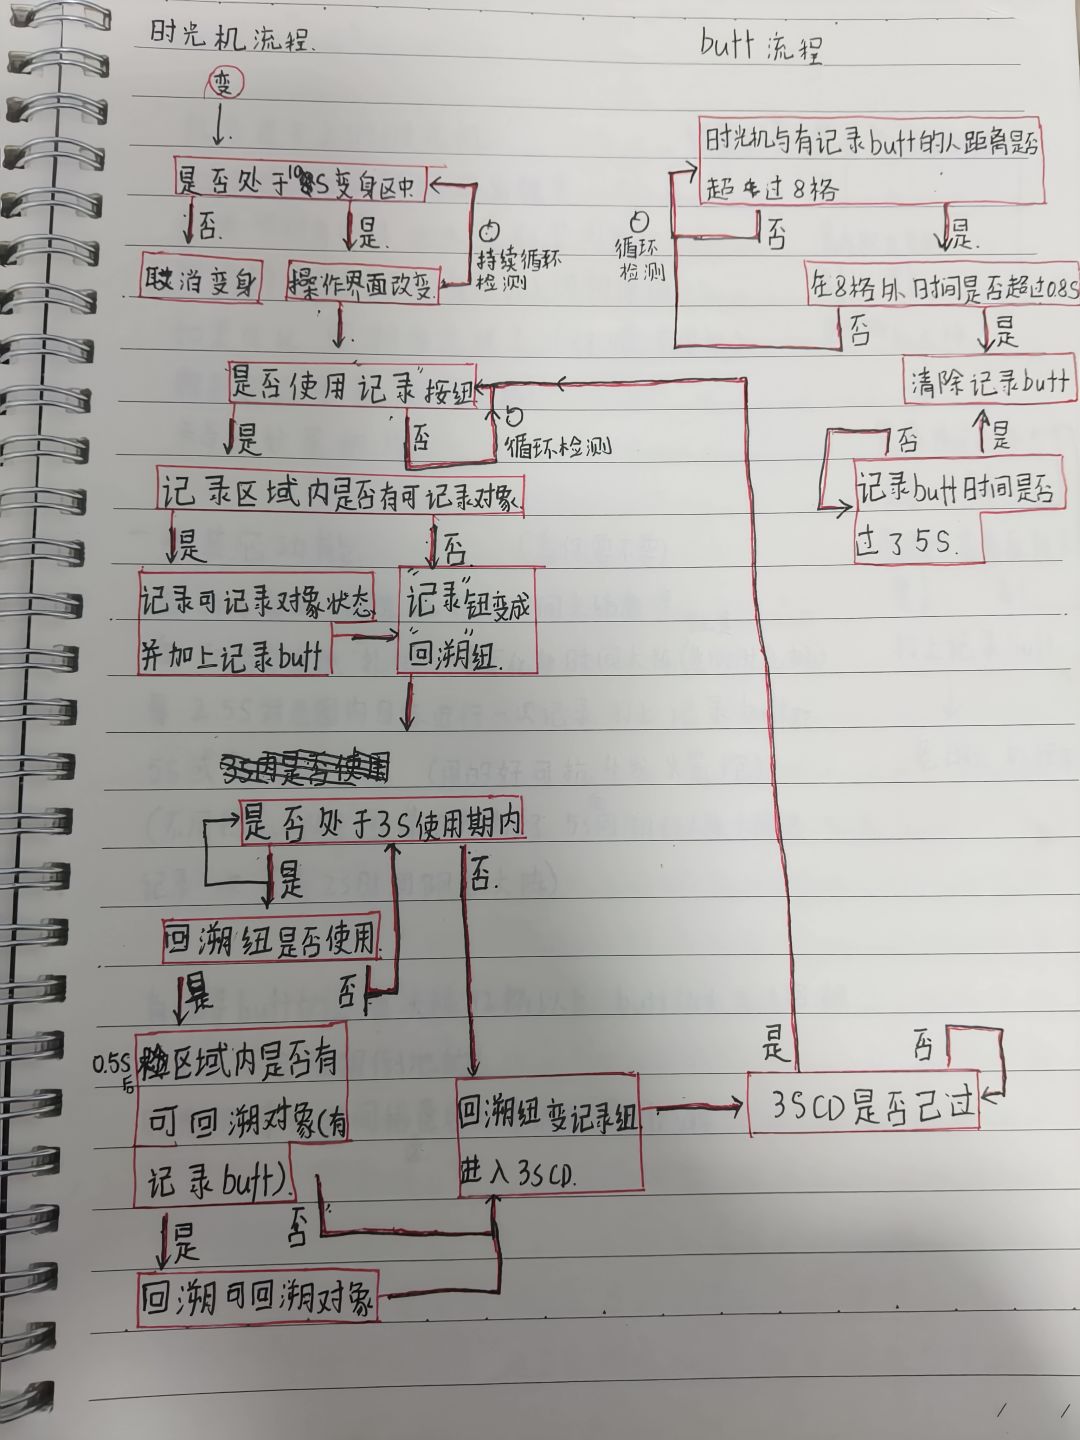 时光机流程.
butt 流程
变
是否处于10S变身区中
否.
是.
持续循环
检测
取消变身
操作界面改变.
是否使用“记录”按钮
是
否
循环检测
记录区域内是否有可记录对象.
是
否.
记录可记录对象状态
并加上记录butt
“记录”钮变成
“回溯”纽.
3S内是否使用
是否处于3S使用期内
是
否.
回溯纽是否使用.
是
否
0.5S
后
检区域内是否有
可回溯对象(有
记录butt).
是
否
回溯可回溯对象
回溯纽变记录纽
进入3SCD.
3SCD是否已过
是
否
时光机与有记录butt的人距离是否
超过8格
否
是.
循环
检测
在8格外时间是否超过0.8S
否
是
清除记录butt
否
是
记录butt时间是否
过了5S.